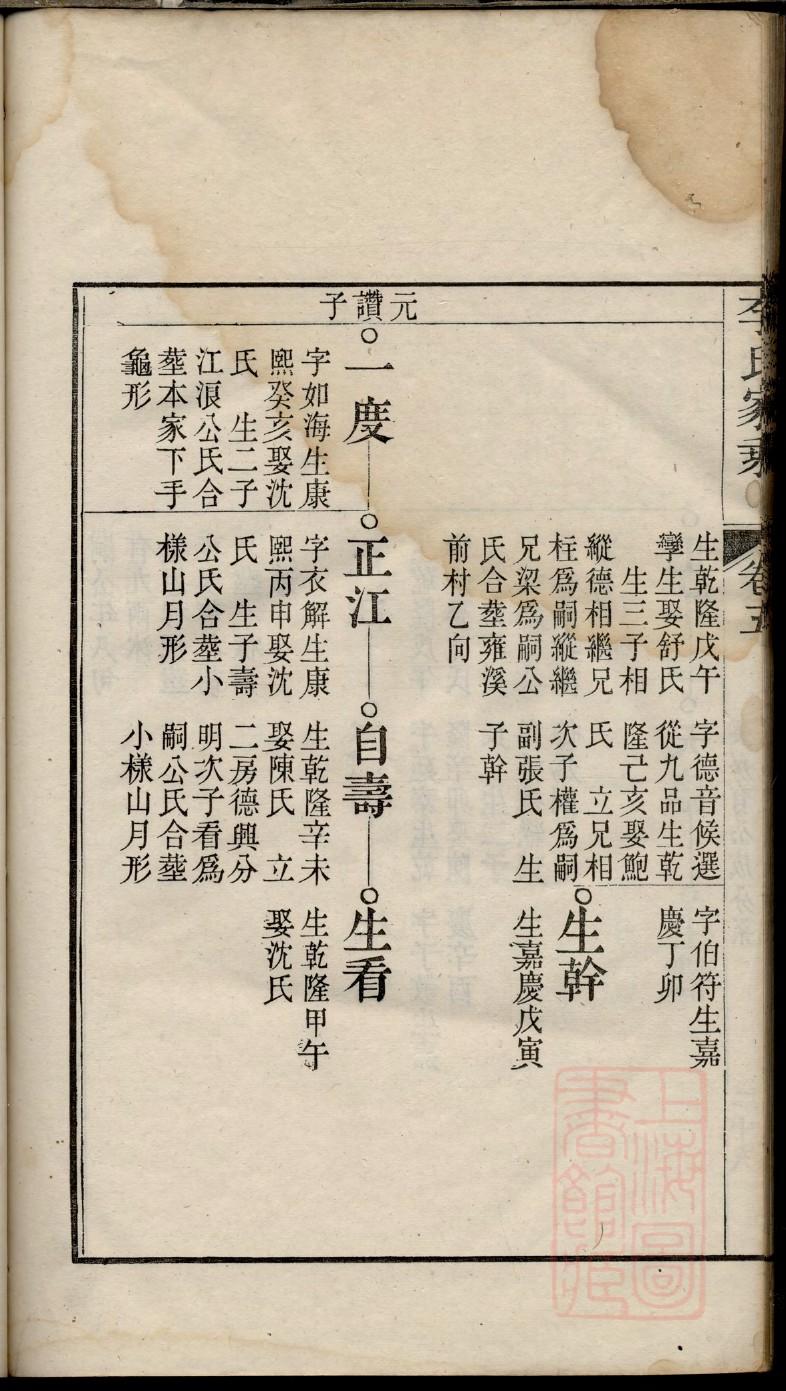 李氏家乘
卷五
生乾隆戊午
孿生娶舒氏
生三子相
縱德相繼兄
柱爲嗣縱繼
兄梁爲嗣公
氏合塟雍溪
前村乙向
字德音候選
從九品生乾
隆己亥娶鮑
氏　立兄相
次子權爲嗣
副張氏　生
子幹
字伯符生嘉
慶丁卯
生幹
生嘉慶戊寅
元讚子
一度
字如海生康
熙癸亥娶沈
氏　生二子
江浪公氏合
塟本家下手
龜形
正江
字衣解生康
熙丙申娶沈
氏　生子壽
公氏合塟小
樣山月形
自壽
生乾隆辛未
娶陳氏　立
二房德興分
明次子看爲
嗣公氏合塟
小樣山月形
生看
生乾隆甲午
娶沈氏
上海圖
書館藏